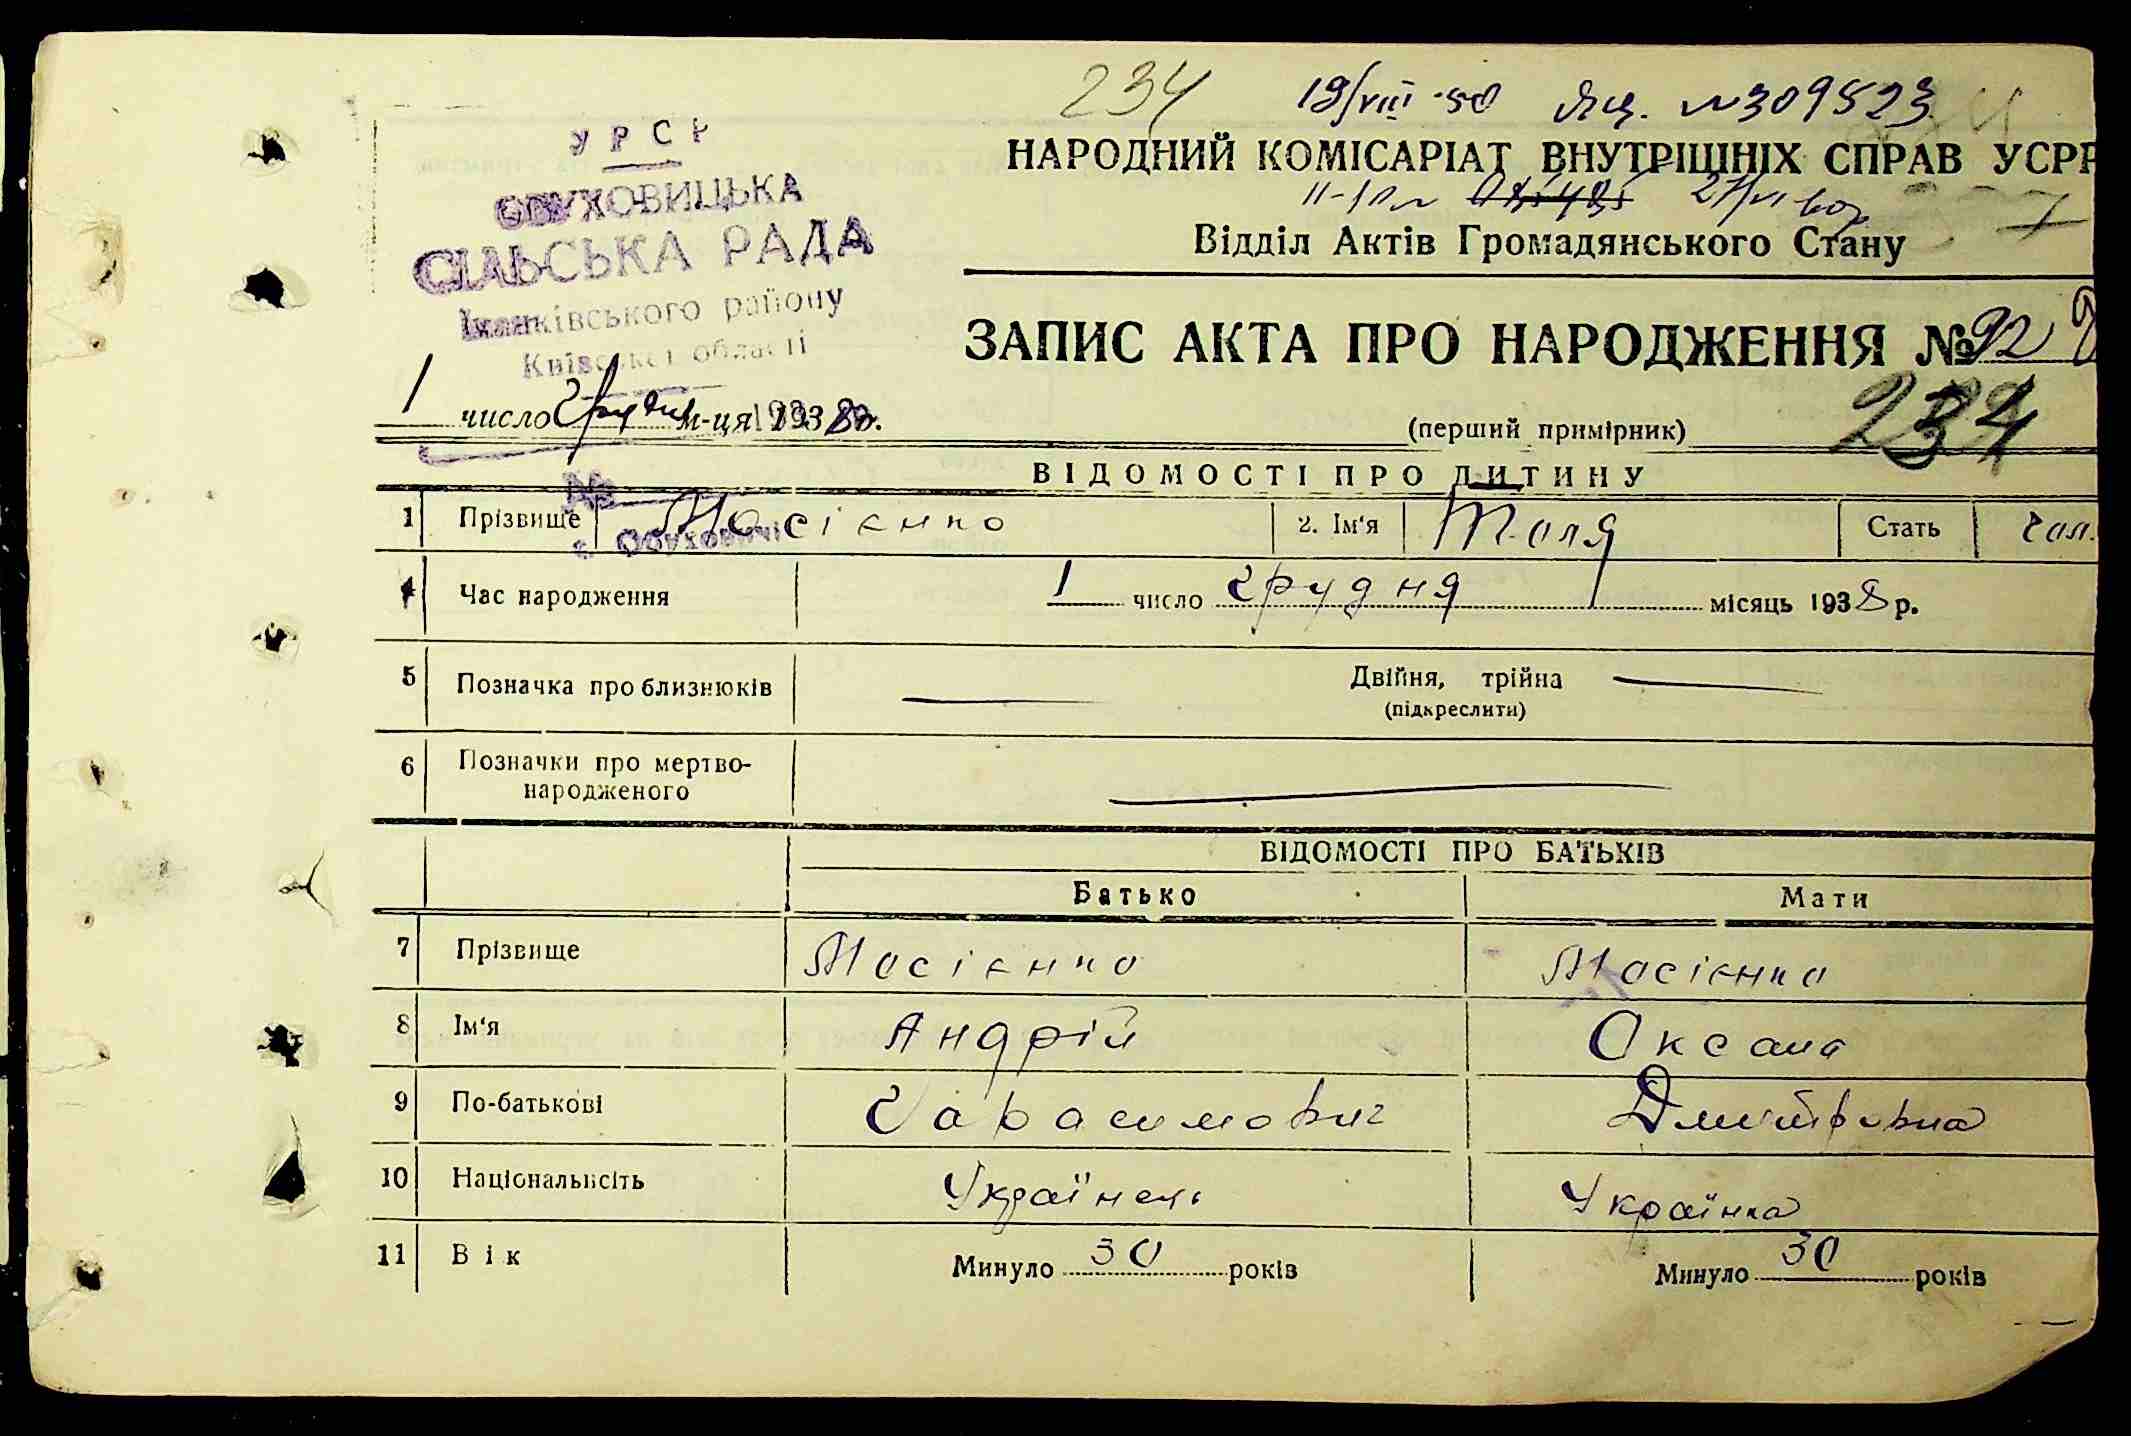 234 19/VIII-50 Ящ. №309523
У Р С Р
ОБУХОВИЦЬКА
СІЛЬСЬКА РАДА
Іванківського району
Київської області
НАРОДНИЙ КОМІСАРІАТ ВНУТРІШНІХ СПРАВ УСРР
Відділ Актів Громадянського Стану
ЗАПИС АКТА ПРО НАРОДЖЕННЯ № 92
1 число Грудня м-ця 1938 р.
(перший примірник) 234
ВІДОМОСТІ ПРО ДИТИНУ
№
с. Обуховичі
1 Прізвище Мосієнко 2. Ім'я Толя Стать чол.
4 Час народження 1 число грудня місяць 1938 р.
5 Позначка про близнюків Двійня, трійна
(підкреслити)
6 Позначки про мертво-
народженого
ВІДОМОСТІ ПРО БАТЬКІВ
Батько Мати
7 Прізвище Мосієнко Мосієнко
8 Ім'я Андрій Оксана
9 По-батькові Гарасимович Дмитровна
10 Національність Українець Українка
11 Вік Минуло 30 років Минуло 30 років